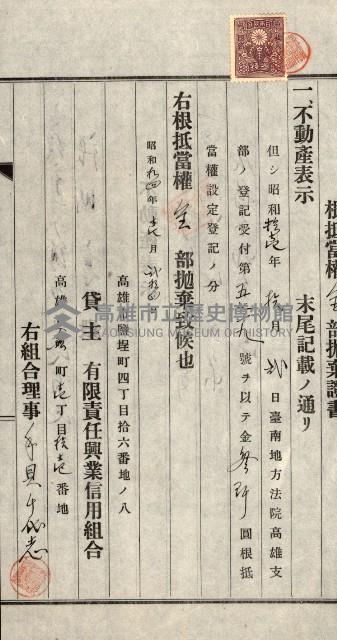 根抵當權全部抛棄證書
一、不動産表示　末尾記載ノ通リ
但シ昭和拾壱年拾月弐日臺南地方法院高雄支
部ノ登記受付第五九號ヲ以テ金參阡圓根抵
當權設定登記ノ分
右根抵當權全部抛棄致候也
昭和拾四年壱月
高雄市鹽埕町四丁目拾六番地ノ八
貸主　有限責任興業信用組合
高雄市町壱丁目拾壱番地
右組合理事
高雄市立歷史博物館
KAOHSIUNG MUSEUM OF HISTORY